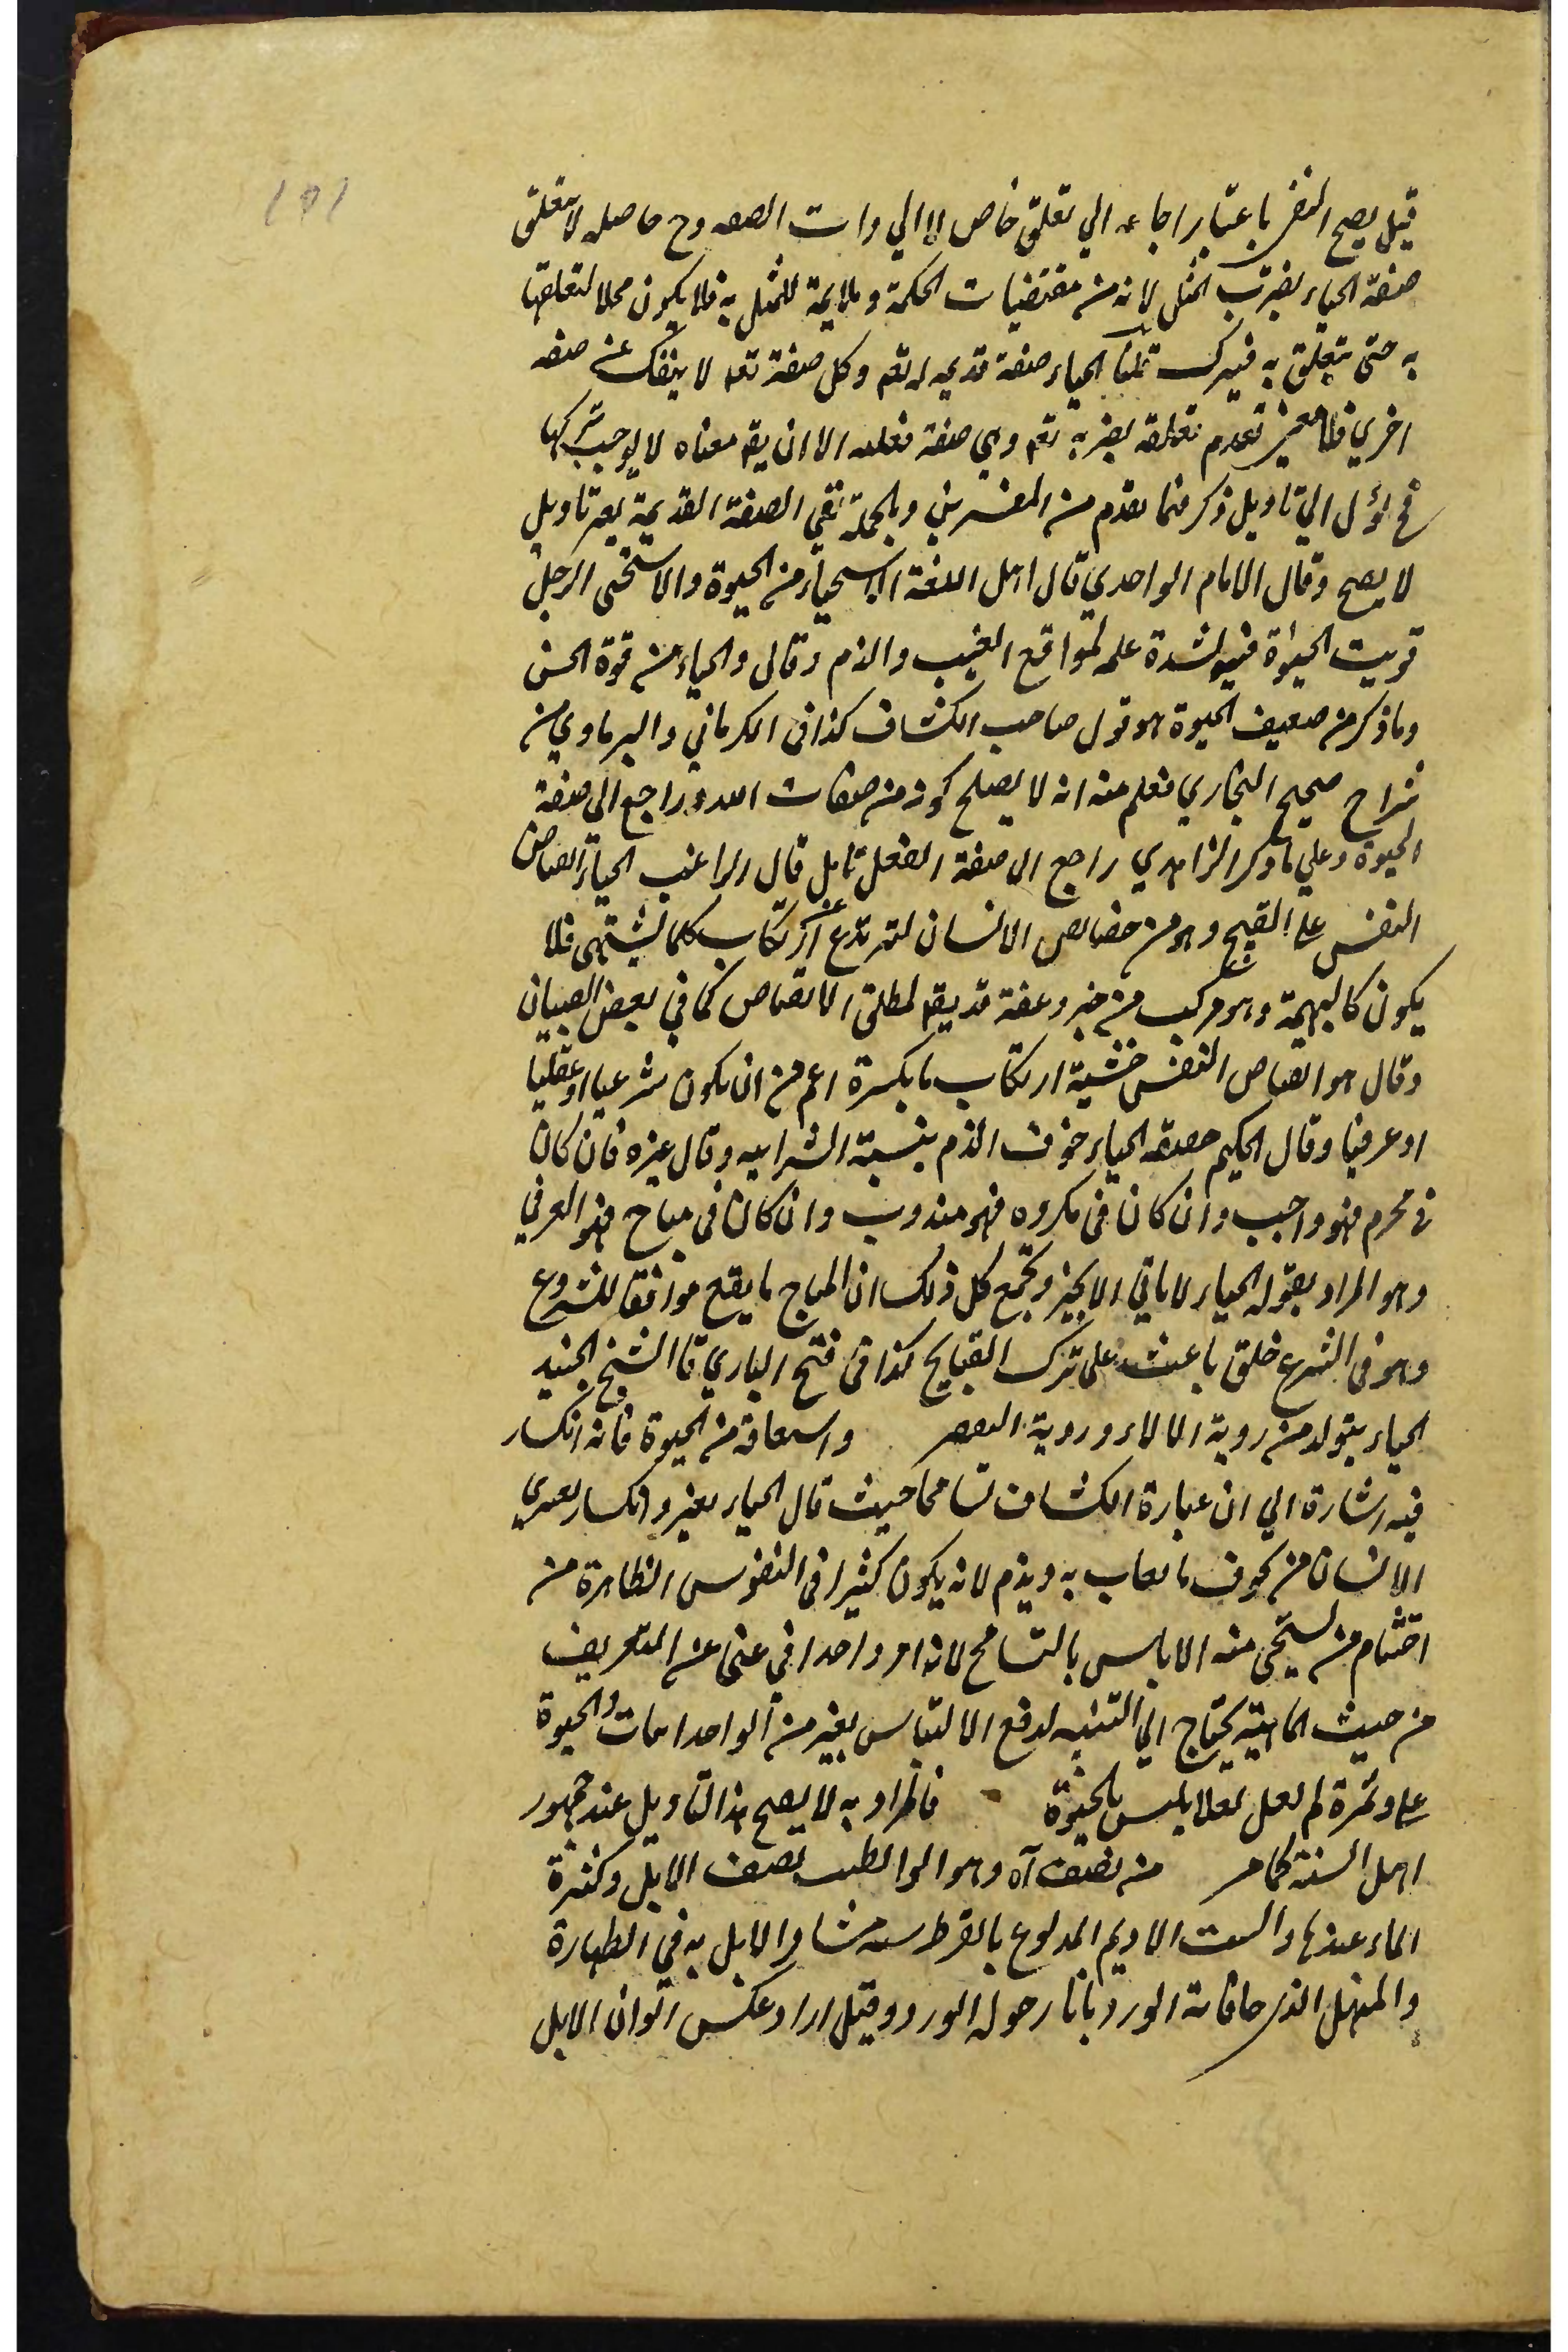 قيل يصح النفى باعتبار ارجاعه الي تعلق خاص لا الي ذات الصفه وح حاصله لا تتعلق
صفة الحياء بضرب المثل لانه من مقتضيات الحكمة وملايمة للمثل به فلا يكون محلا لتعلقها
به حتى يتعلق به فيترك قلنا الحياء صفة قديمه له تعم وكل صفة تعم لا ينفك عن صفه
اخري فلا معنى لعدم تعلقه بضربه تعم وهي صفة فعليه الا ان يقم معناه لا يوجب تركها
فح يؤل الي تاويل ذكر فيما تقدم من المفسرين وبالجملة نفي الصفة القديمة بغير تاويل
لا يصح وقال الامام الواحدي قال اهل اللغة الاستحياء من الحيوة والاستحى الرجل
قويت الحيوة فيه لشدة علمه لمواقع العيب والذم وقال والحياء من قوة الحس
وما ذكر من ضعيف الحيوة هو قول صاحب الكشاف كذا في الكرماني والبرماوي من
شراح صحيح البخاري فعلم منه انه لا يصلح كونه من صفات الله وراجع الى صفة
الحيوة وعلي ما ذكر الزاهدي راجع الى صفة الفعل تامل قال الراغب الحياء انقباض
النفس على القبيح وهو من خصايص الانسان ليرتدع عن ارتكاب كلما يشتهى فلا
يكون كالبهيمة وهو مركب من خير وعفة قد يقم لمطلق الانقباض كما في بعض الصبيان
وقال هو انقباض النفس خشية ارتكاب ما يكره اعم من ان يكون شرعيا او عقليا
او عرفيا وقال الحكيم حقيقة الحياء خوف الذم بنسبة الشر اليه وقال غيره فان كان
في محرم فهو واجب وان كان في مكروه فهو مندوب وان كان في مباح فهو العرفي
وهو المراد بقوله الحياء لا ياتي الا بخير ويجمع كل ذلك ان المباح ما يقع موافقا للشروع
وهو في الشرع خلق باعث على ترك القبايح كذا في فتح الباري قا الشيخ الجنيد
الحياء يتولد من روية الالاء وروية التقصير واشتقاقه من الحيوة فانه انكسار
فيه اشارة الي ان عبارة الكشاف تسامحا حيث قال الحياء تغير وانكسار يعتري
الانسان من تخوف ما يعاب به ويذم لانه يكون كثيرا في النفوس الظاهرة من
احتشام من يستحى منه الا بالتسامح لانه امر وجداني غنى عن التعريف
من حيث الماهية يحتاج الي التنبيه لدفع الالتباس بغير من الوجدانيات والحيوة
علي وثمرة لم لعل بالحيوة فالمراد به لا يصح هذا التاويل عند جمهور
اهل السنة كما مر من يصف آه وهو ابو الطيب يصف الابل وكثرة
الماء عندها والسبت الاديم المدبوغ بالقرظ شبه مشافر الابل به في الطهارة
والمنهل الذي حافاته الورد باناء حوله الورد وقيل اراد عكس الوان الابل